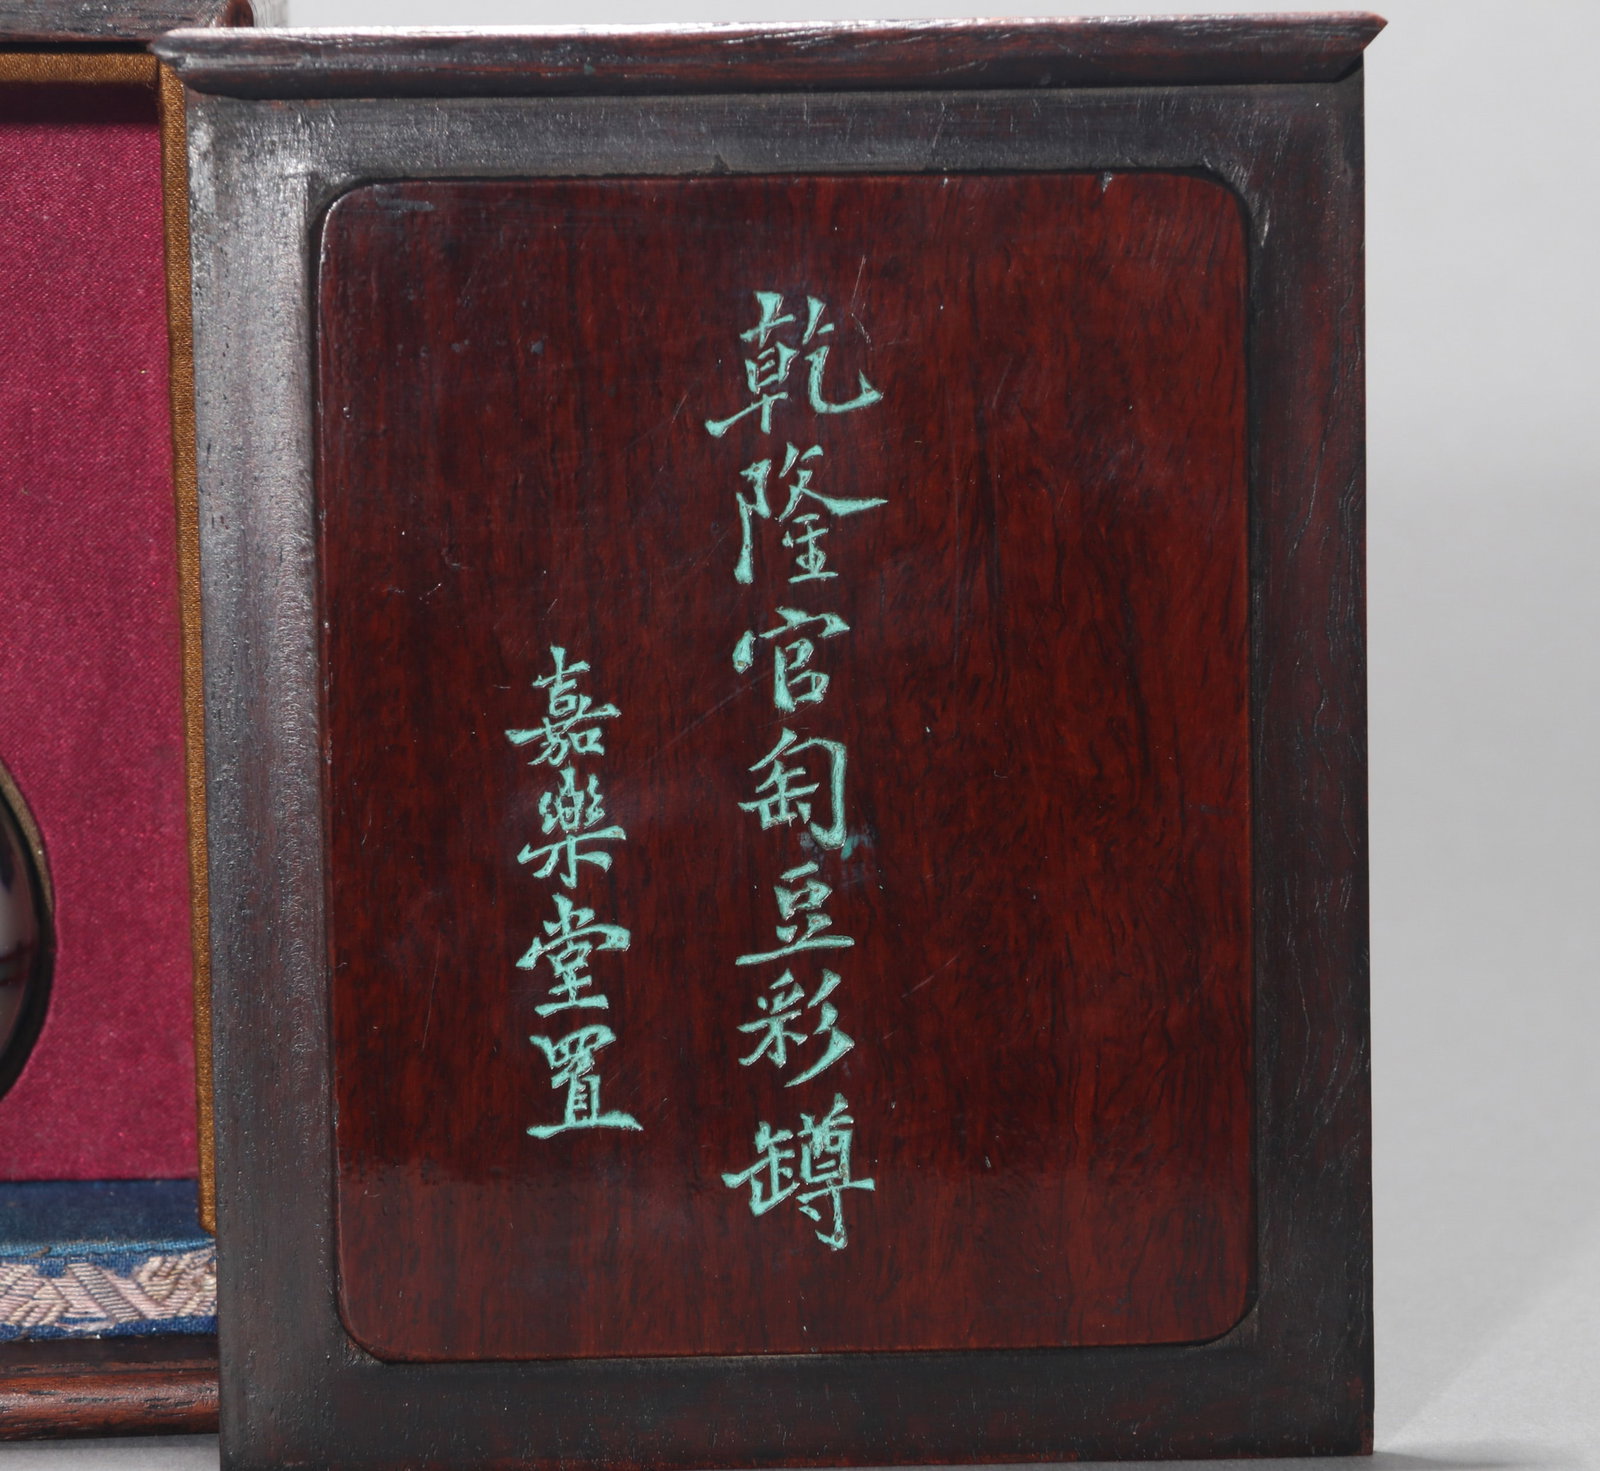 乾隆官匋豆彩罇
嘉樂堂置